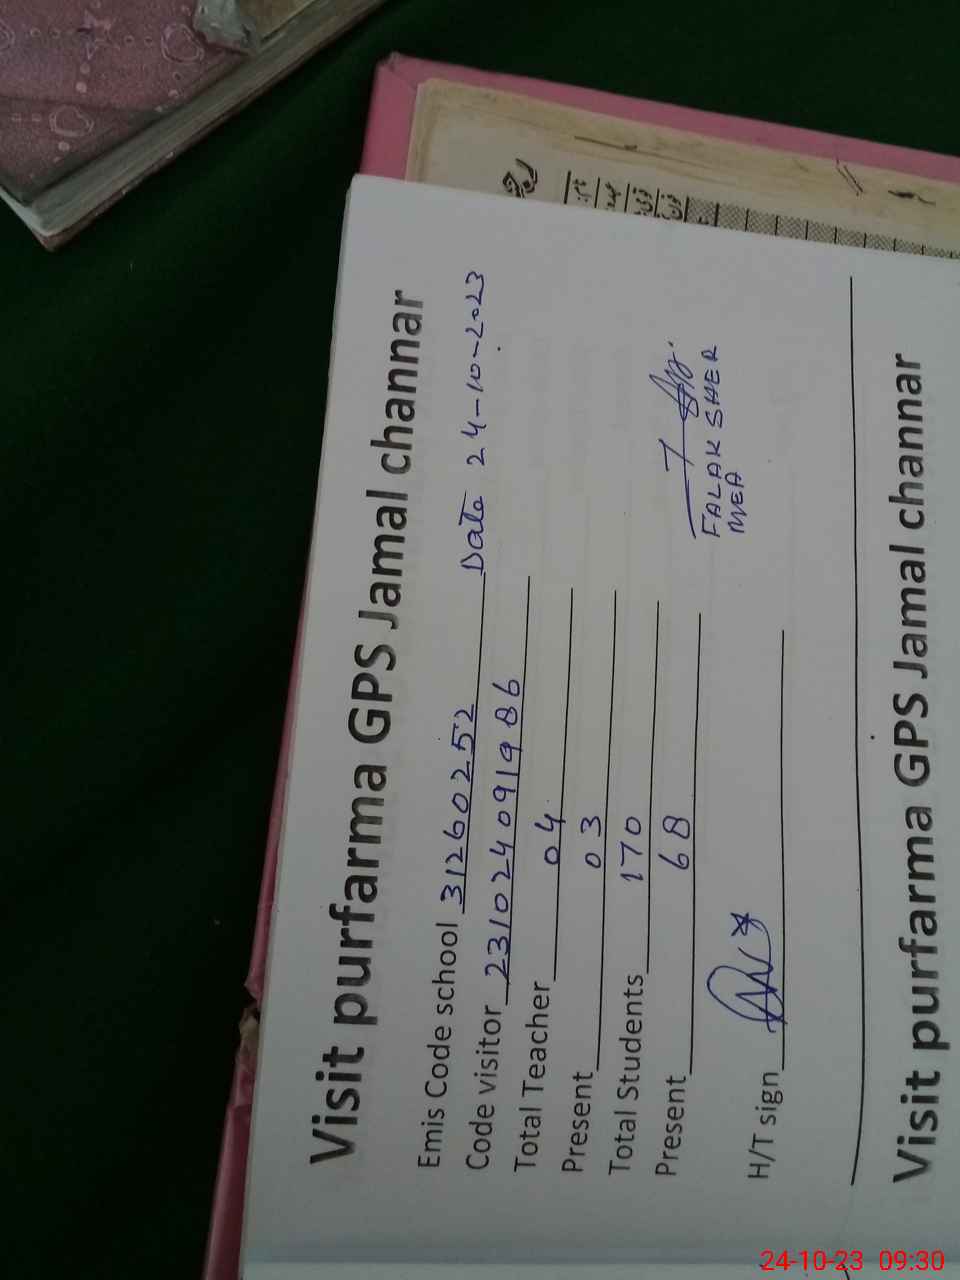 Visit purfarma GPS Jamal channar
Emis Code school 31260252 Date 24-10-2023
Code visitor 231024091986
Total Teacher 04
Present 03
Total Students 170
Present 68
FALAK SHER
MEA
H/T sign
Visit purfarma GPS Jamal channar
24-10-23 09:30